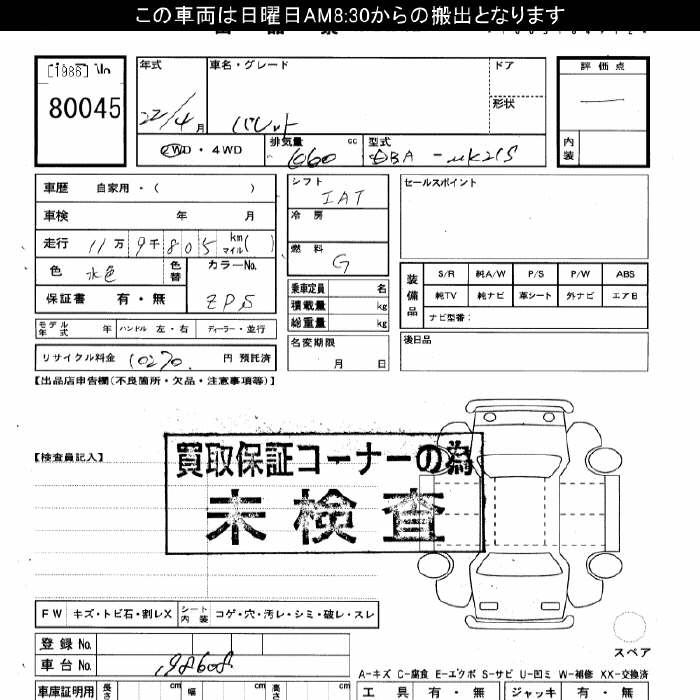 この車両は日曜日AM8:30からの搬出となります
[1986] No
80045
年式
22/4月
車名・グレード
パレット
ドア
形状
評価点
内装
2WD・4WD
排気量
660 cc
型式
DBA-MK21S
車歴 自家用・( )
車検 年 月
走行 11万9千805 km マイル( )
色 水色
色替
カラーNo.
ZPS
保証書 有・無
モデル年式 年 ハンドル 左・右 ディーラー・並行
リサイクル料金 10270 円 預託済
シフト
IAT
冷房
燃料
G
乗車定員 名
積載量 kg
総重量 kg
名変期限
月 日
セールスポイント
装備品
S/R 純A/W P/S P/W ABS
純TV 純ナビ 革シート 外ナビ エアB
ナビ型番:
後日品
【出品店申告欄(不良箇所・欠品・注意事項等)】
【検査員記入】
買取保証コーナーの為
未検査
FW キズ・トビ石・割レX シート内装 コゲ・穴・汚レ・シミ・破レ・スレ
登録No.
車台No. 198608
スペア
A-キズ C-腐食 E-エクボ S-サビ U-凹ミ W-補修 XX-交換済
車庫証明用 長さ cm 幅 cm 高さ cm
工具 有・無 ジャッキ 有・無